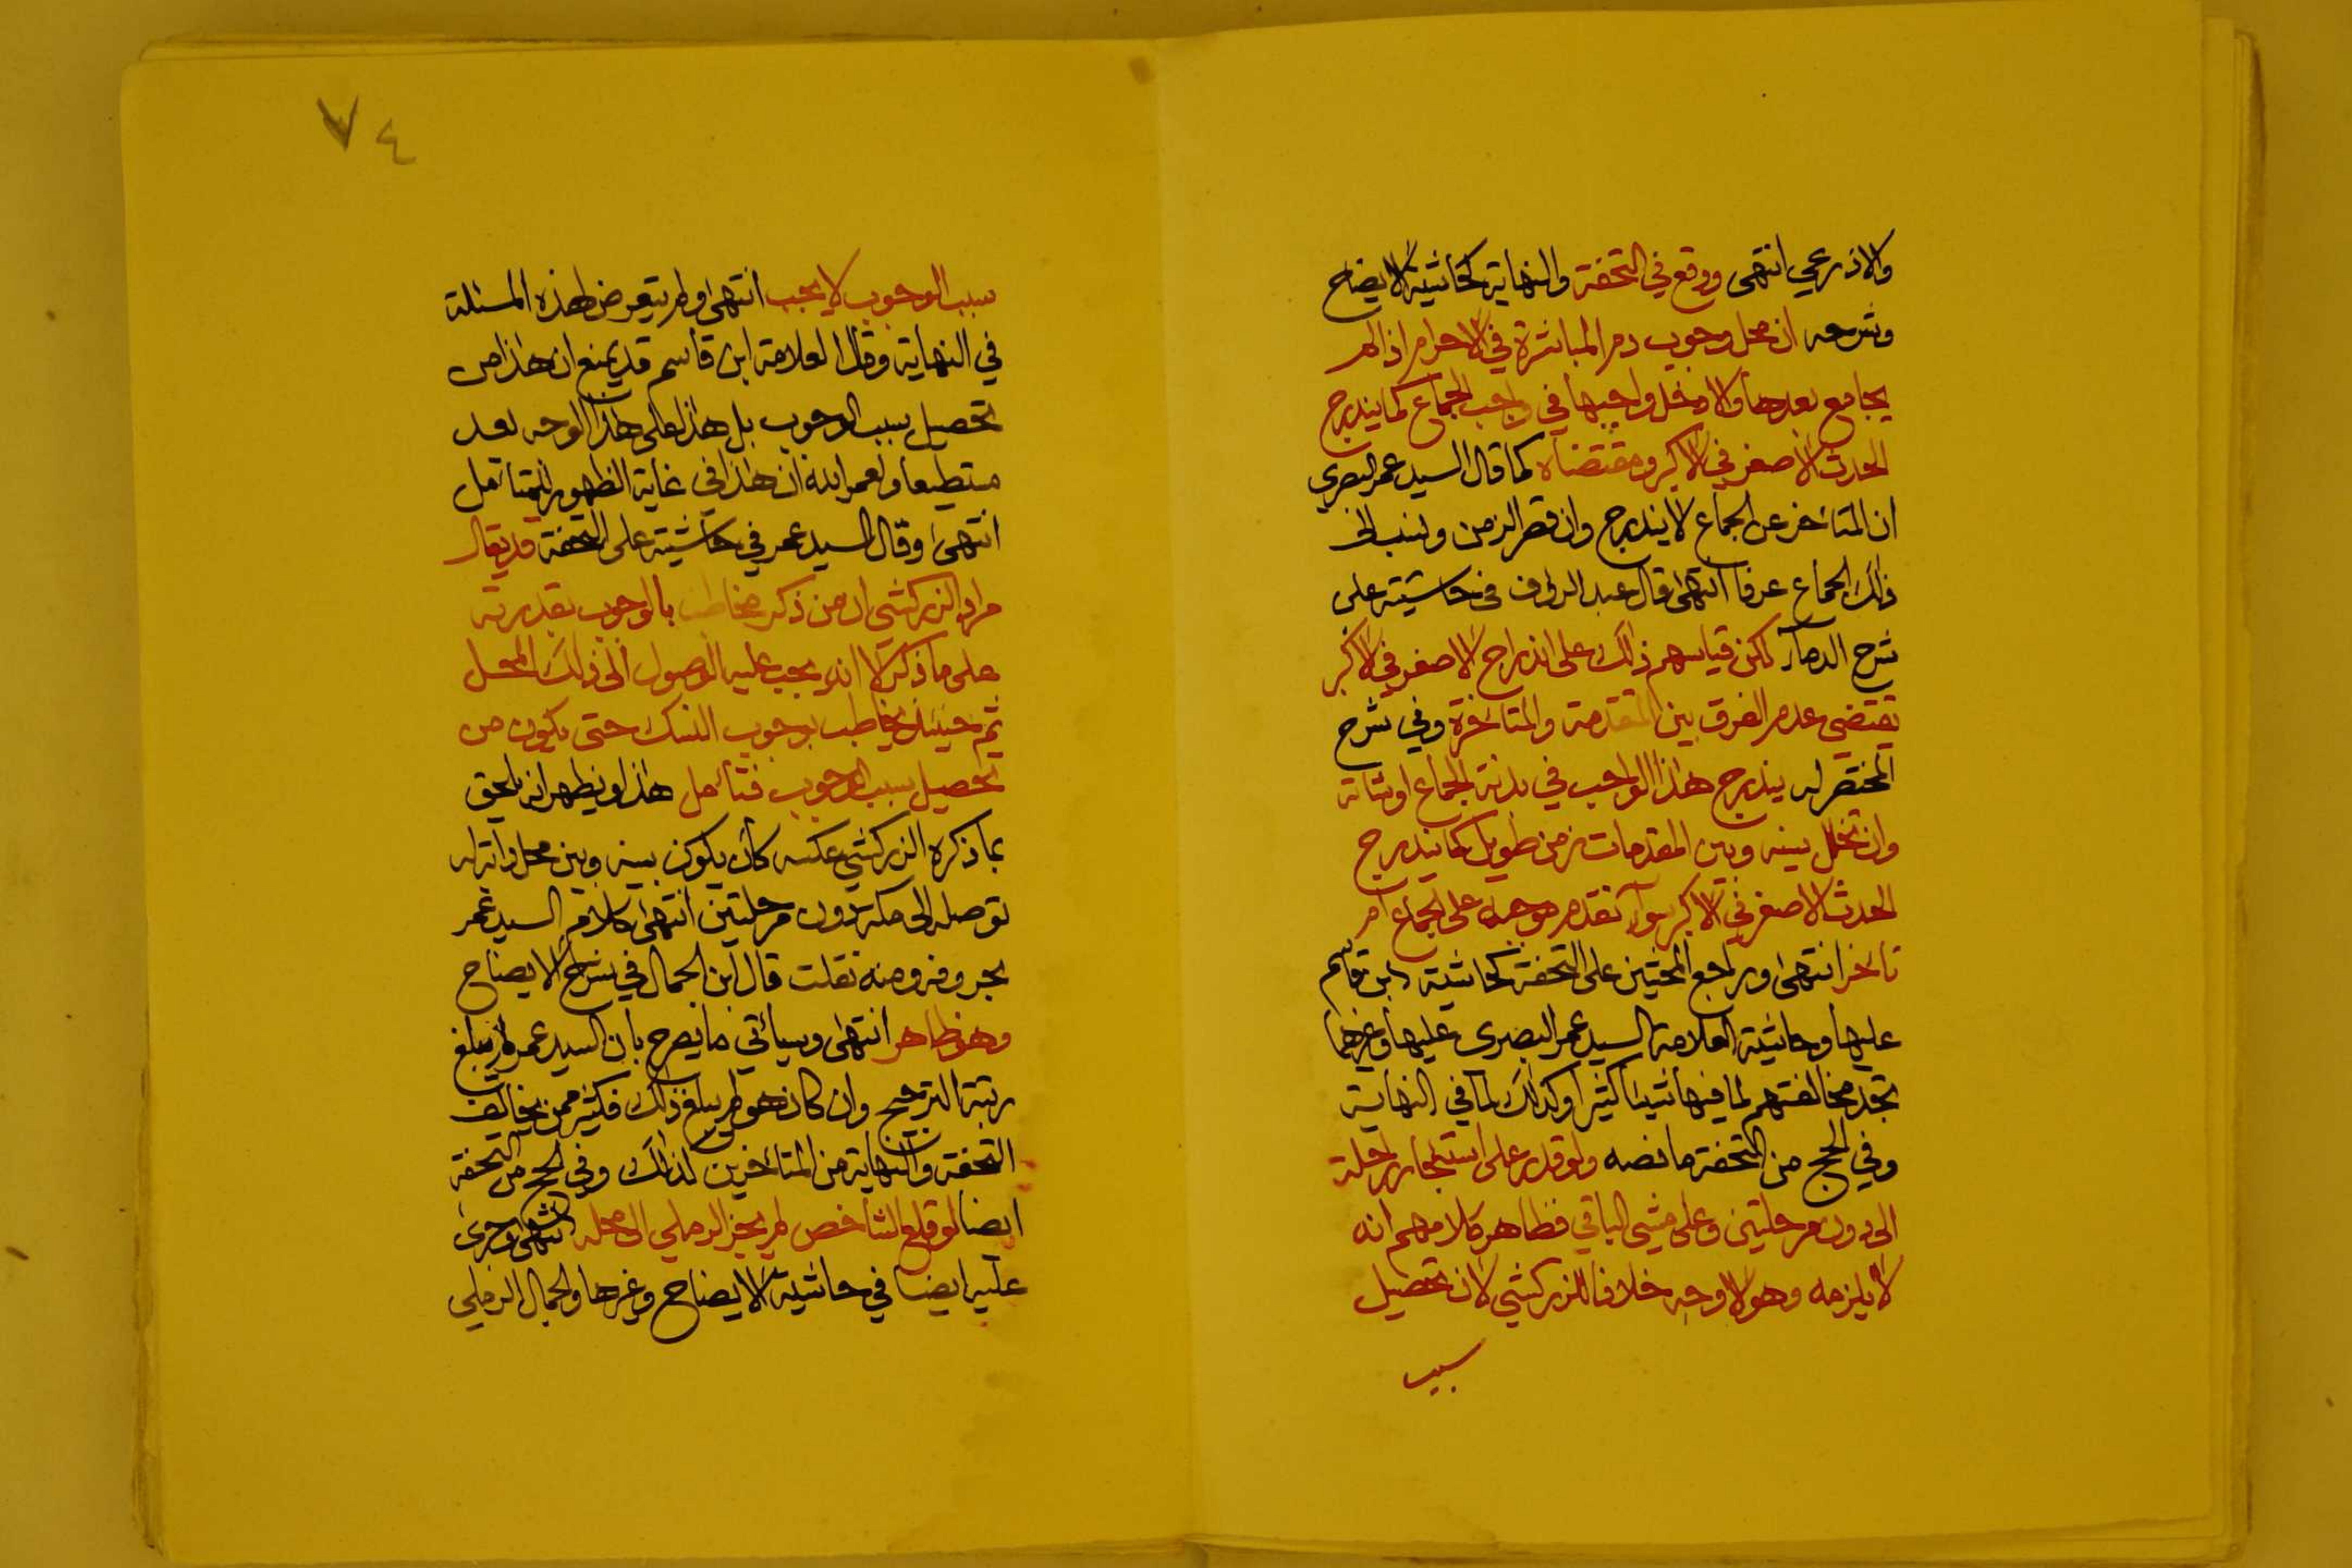 والاذرعي انتهى ووقع في التحفة والنهاية كحاشية الايضاح
وشرحه ان محل وجوب دم المباشرة في الاحرام اذا لم
يجامع بعدها والا دخل واجبها في واجب الجماع كما يندرج
الحدث الاصغر في الاكبر ومقتضاه كما قال السيد عمر البصري
ان المتاخر عن الجماع لا يندرج وان قصر الزمن ونسب الى
ذلك الجماع عرفا انتهى قال عبد الرؤف في حاشيته على
شرح الدماء لكن قياسهم ذلك على اندراج الاصغر في الاكبر
تقتضي عدم الفرق بين المتقدمة والمتاخرة وفي شرح
المختصر له يندرج هذا الواجب في بدنة الجماع او شاته
وان تخلل بينه وبين المقدمات زمن طويل كما يندرج
الحدث الاصغر في الاكبر سواء تقدم موجبه على الجماع ام
تاخر انتهى وراجع المحشين على التحفة كحاشية ابن قاسم
عليها وحاشية العلامة السيد عمر البصري عليها وغيرهما
تجد مخالفتهم لما فيها شيئا كثيرا وكذلك لما في النهاية
وفي الحج من التحفة ما نصه ولو قدر على استئجار راحلة
الى دون مرحلتين وعلى مشي الباقي فظاهر كلامهم انه
لا يلزمه وهو الاوجه خلافا للزركشي لان تحصيل
سبب
٧٤
سبب الوجوب لا يجب انتهى ولم يتعرض لهذه المسئلة
في النهاية وقال العلامة ابن قاسم قد يمنع ان هذا من
تحصيل سبب الوجوب بل هذا على هذا الوجه يعد
مستطيعا ولعمر الله ان هذا في غاية الظهور للمتامل
انتهى وقال السيد عمر في حاشيته على التحفة قد يقال
مراد الزركشي ان من ذكر مخاطب بالوجوب بقدرته
على ما ذكر لا انه يجب عليه الوصول الى ذلك المحل
ثم حينئذ يخاطب بوجوب النسك حتى يكون من
تحصيل سبب الوجوب فتأمل هذا ويظهر انه يلحق
بما ذكره الزركشي عكسه كأن يكون بينه وبين محل دابة له
توصله الى مكة دون مرحلتين انتهى كلام السيد عمر
بحروفه ومنه نقلت قال ابن الجمال في شرح الايضاح
وهو ظاهر انتهى وسيأتي ما يصرح بأن السيد عمر لم يبلغ
رتبة الترجيح وان كان هو لم يبلغ ذلك فكثير ممن يخالف
التحفة والنهاية من المتاخرين كذلك وفي الحج من التحفة
ايضا لو قلع الشاخص لم يجز الرملي الى محله انتهى وجرى
عليه ايضا في حاشية الايضاح وغيرها والجمال الرملي